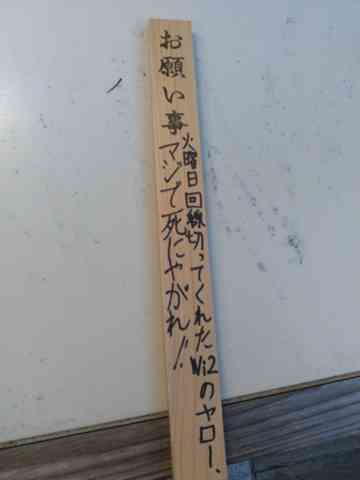 お願い事
火曜日回線切ってくれたWi2のヤロー、
マジで死にやがれ!!